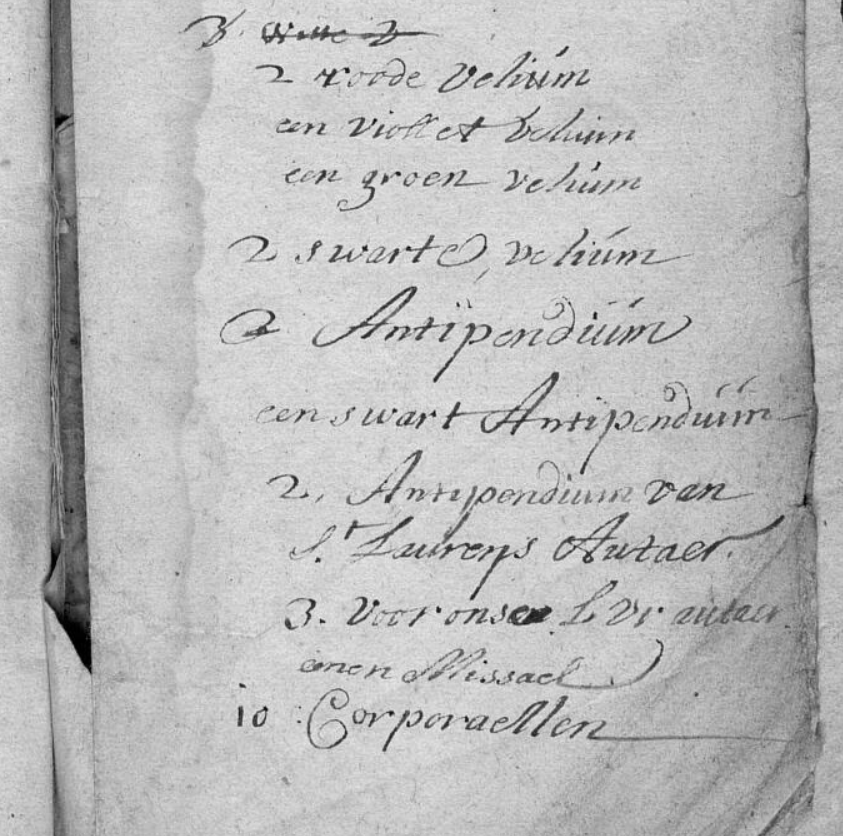 3. Witte 2
2 roode velium
een viollet velium
een groen velium
2 swarte, velium
2 Antipendium
een swart Antipendium
2. Antipendium van
S.t Laureijs Autaer.
3. voor onse L Vr autaer.
eenen Missael.
10 : Corporaellen